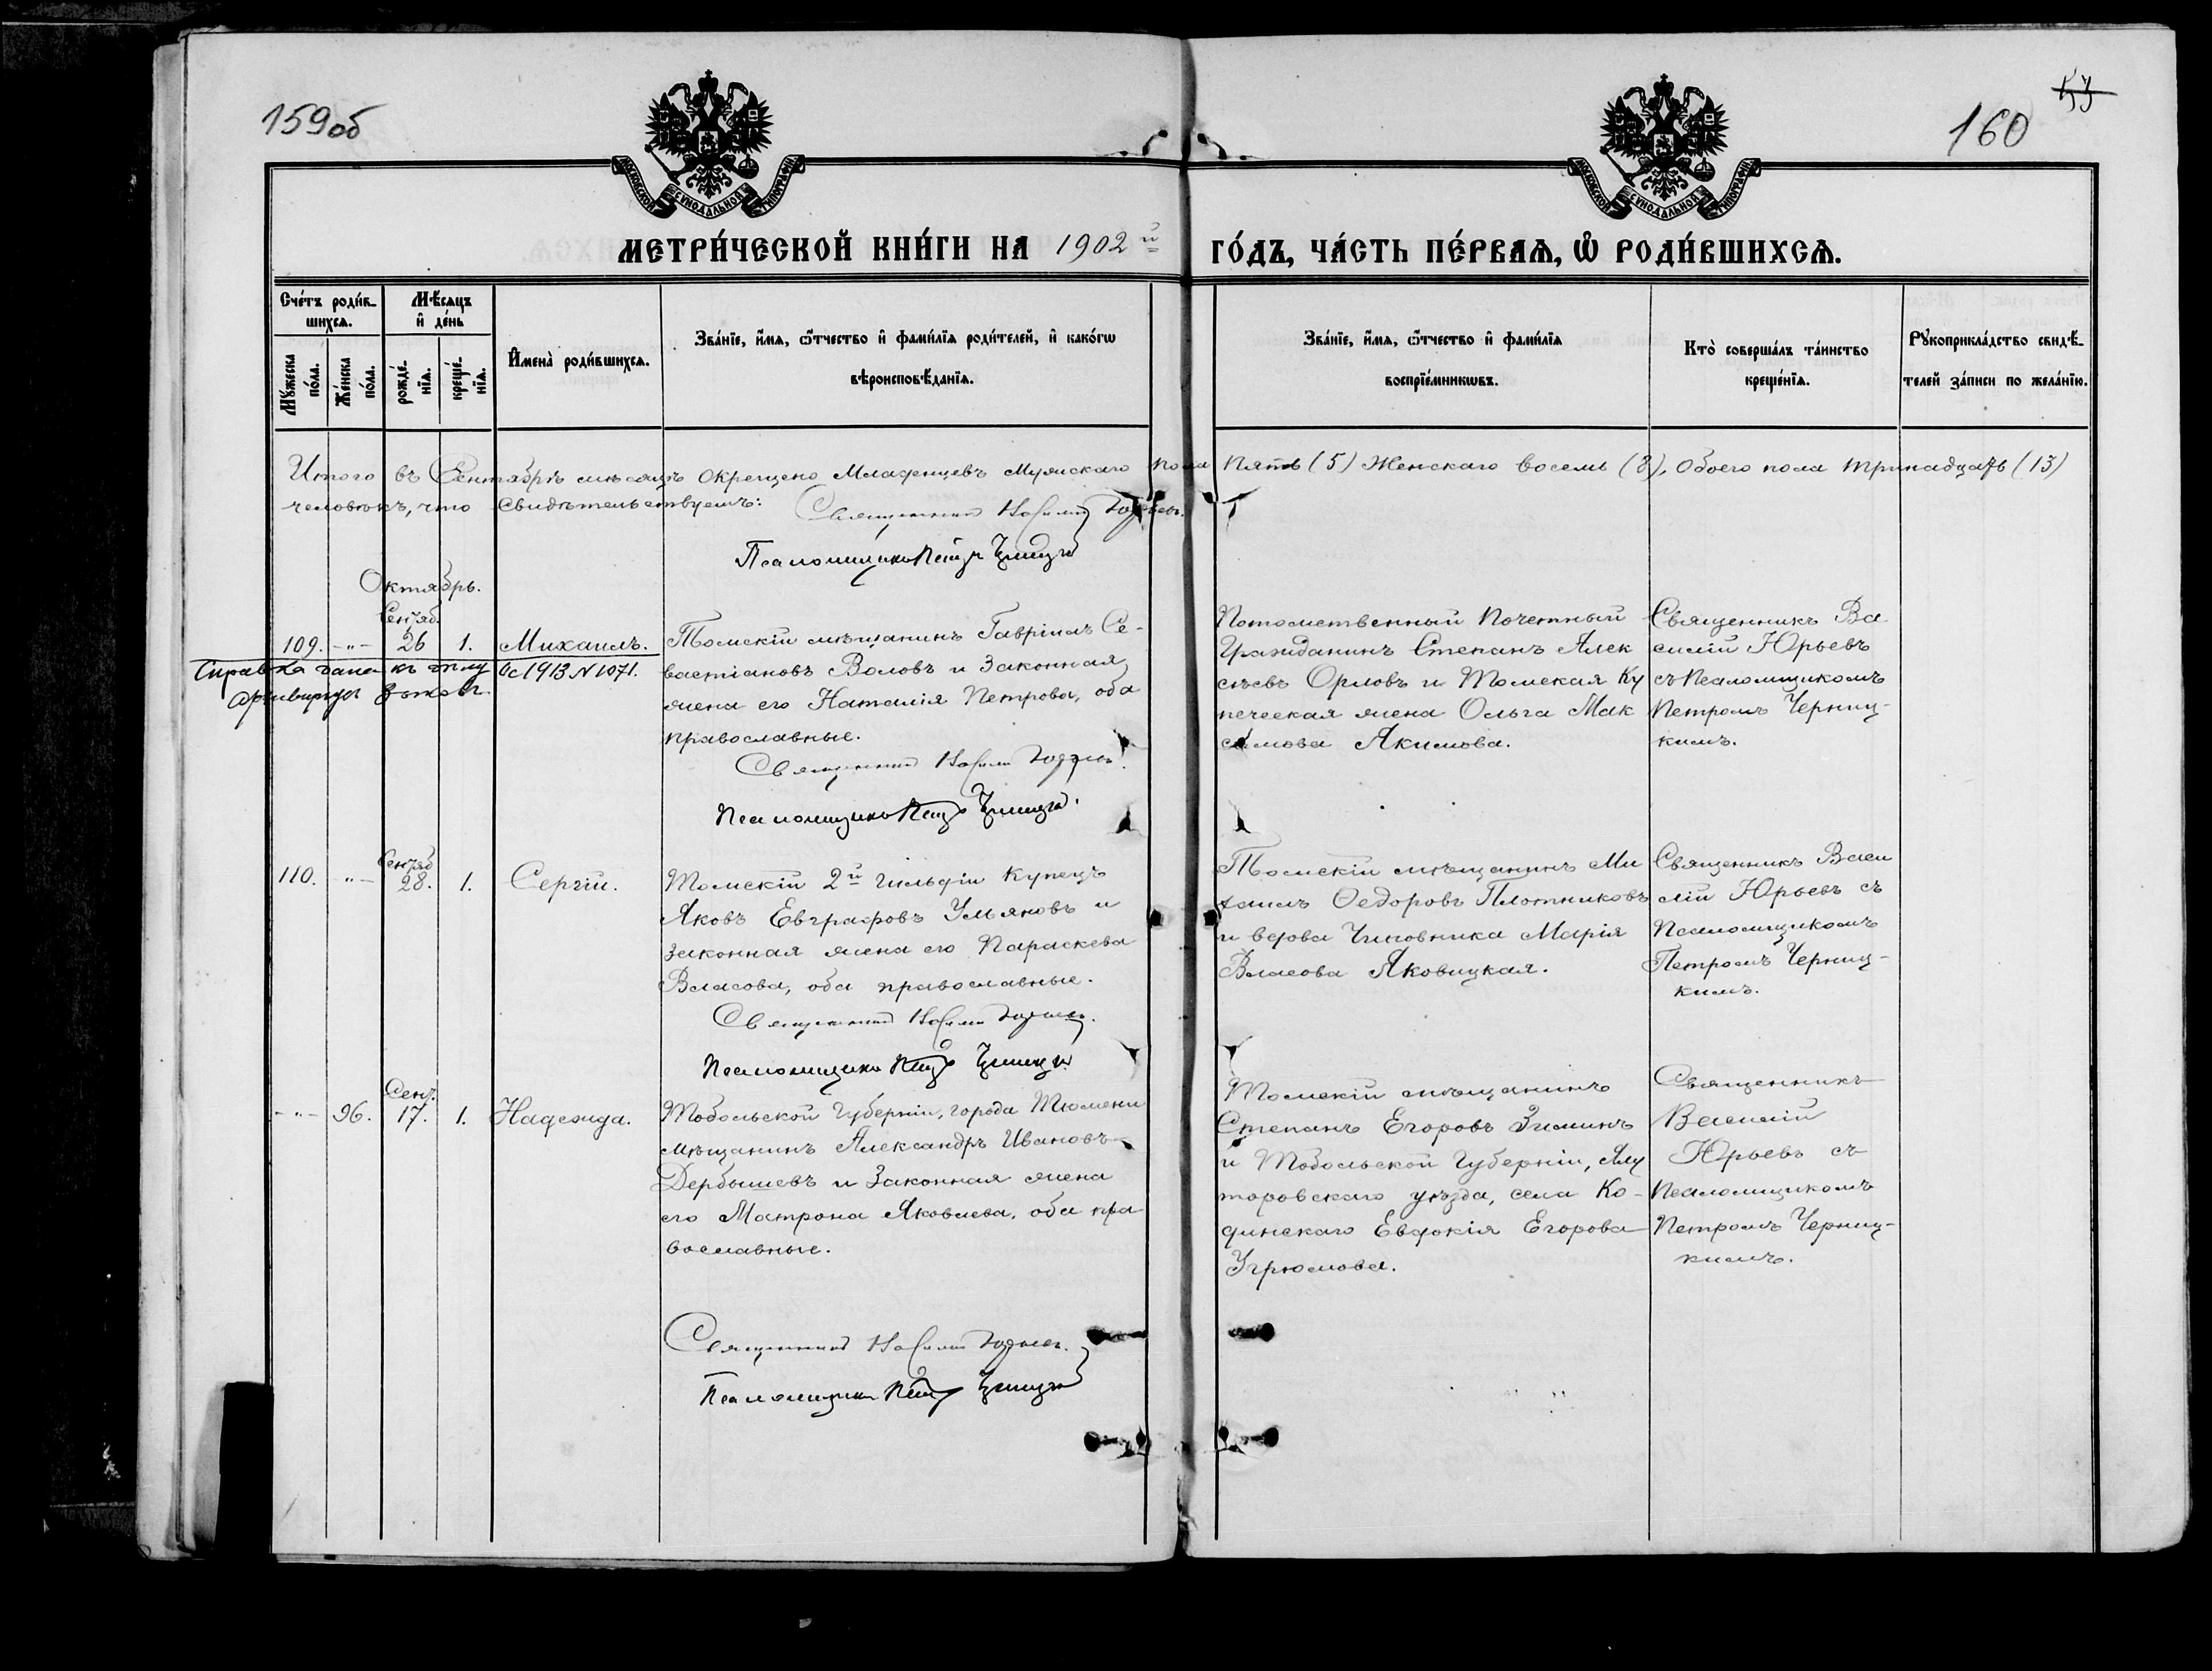 159об
160
53
МОСКОВСКОЙ СѴНОДАЛЬНОЙ ТИПОГРАФІИ
МОСКОВСКОЙ СѴНОДАЛЬНОЙ ТИПОГРАФІИ
МЕТРИ́ЧЕСКОЙ КНИ́ГИ НА 1902й ГО́ДЪ, ЧА́СТЬ ПЕ́РВАѦ, Ѽ РОДИ́ВШИХСѦ.
Сче́тъ роди́в-
шихсѧ.
Мꙋ́жеска по́ла.
Же́нска по́ла.
Мѣ́сѧцъ
и҆ де́нь
рожде́-
нїѧ.
креще́-
нїѧ.
И҆мена̀ роди́вшихсѧ.
Зва́нїе, и҆́мѧ, ѻ҆́тчество и҆ фами́лїѧ роди́телей, и҆ како́гѡ
вѣроисповѣ́данїѧ.
Зва́нїе, и҆́мѧ, ѻ҆́тчество и҆ фами́лїѧ
воспрїе́мникѡвъ.
Кто̀ соверша́лъ та́инство
креще́нїѧ.
Рꙋкоприкла́дство свидѣ́-
телей за́писи по жела́нїю.
Итого въ Сентябрѣ мѣсяцѣ окрещено младенцевъ мужскаго пола пять (5) Женскаго восемь (8), обоего пола тринадцать (13)
человѣкъ, что свидѣтельствуемъ: Священникъ Василій Юрьевъ.
Псаломщикъ Петръ Черницкій
Октябрь.
Сентяб.
109. -"- 26 1. Михаилъ.
Справка дана къ дѣлу Ос 1913 № 1071.
Томскій мѣщанинъ Гавріилъ Се-
вастіановъ Воловъ и законная
жена его Наталія Петрова, оба
православные.
Священникъ Василій Юрьевъ.
Псаломщикъ Петръ Черницкій.
Потомственный Почетный
Гражданинъ Степанъ Алек
сѣевъ Орловъ и Томская Ку
печеская жена Ольга Мак
симова Акимова.
Священникъ Ва
силій Юрьевъ
съ Псаломщикомъ
Петромъ Черниц-
кимъ.
Сентяб
110. -"- 28. 1. Сергій.
Томскій 2й гильдіи купецъ
Яковъ Евграфовъ Ульяновъ и
законная жена его Параскева
Власова, оба православные.
Священникъ Василій Юрьевъ.
Псаломщикъ Петръ Черницкій
Томскій мѣщанинъ Ми
хаилъ Ѳедоровъ Плотниковъ
и вдова Чиновника Марія
Власова Яковицкая.
Священникъ Васи
лій Юрьевъ съ
Псаломщикомъ
Петромъ Черниц-
кимъ.
Сент.
-"- 96. 17. 1. Надежда.
Тобольской губерніи, города Тюмени
мѣщанинъ Александръ Ивановъ
Дербышевъ и законная жена
его Матрона Яковлева, оба пра
вославные.
Священникъ Василій Юрьевъ.
Псаломщикъ Петръ Черницкій
Томскій мѣщанинъ
Степанъ Егоровъ Зиминъ
и Тобольской губерніи, Ялу
торовскаго уѣзда, села Ко-
динскаго Евдокія Егорова
Угрюмова.
Священникъ
Василій
Юрьевъ съ
Псаломщикомъ
Петромъ Черниц-
кимъ.